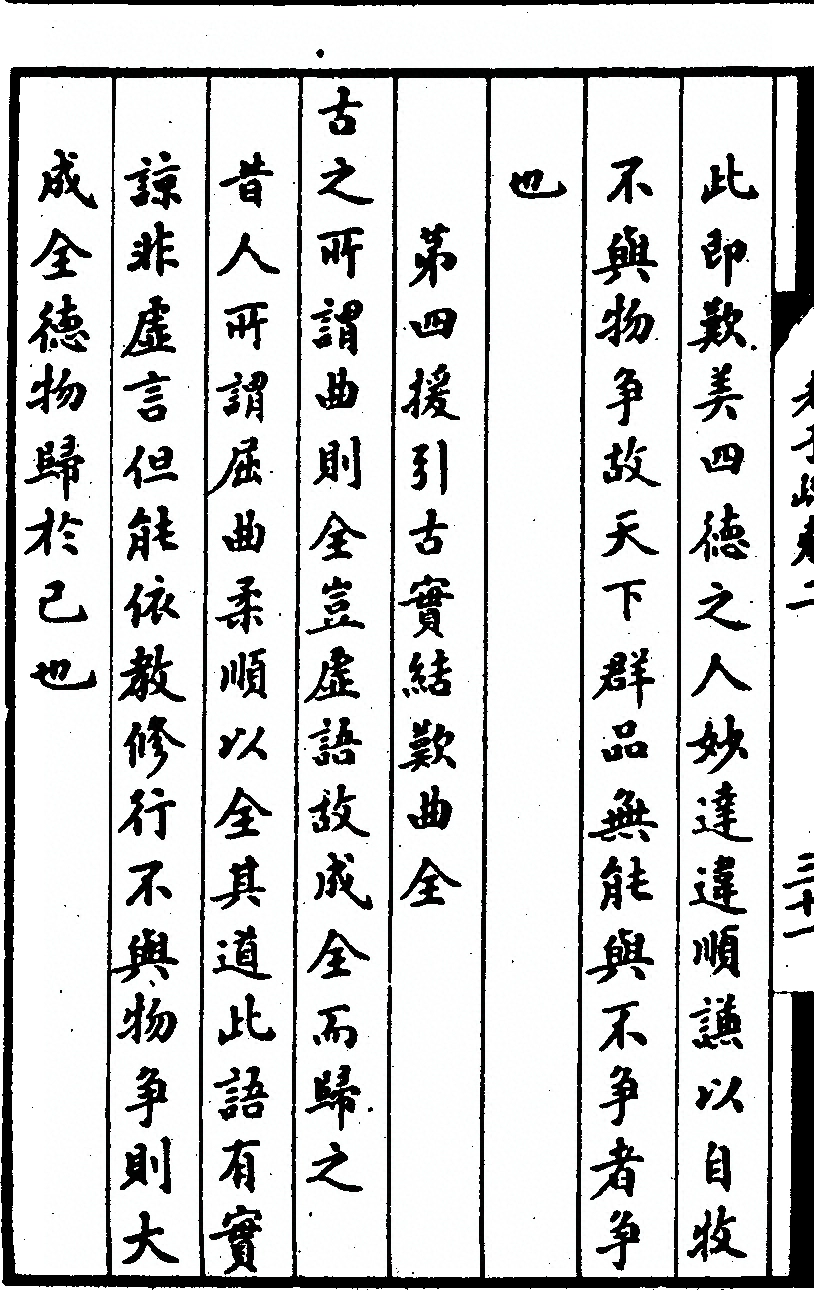 老子疏卷二
三十一
此即歎美四德之人妙達違順謙以自牧
不與物爭故天下群品無能與不爭者爭
也
第四援引古實結歎曲全
古之所謂曲則全豈虛語故成全而歸之
昔人所謂屈曲柔順以全其道此語有實
諒非虛言但能依教修行不與物爭則大
成全德物歸於己也